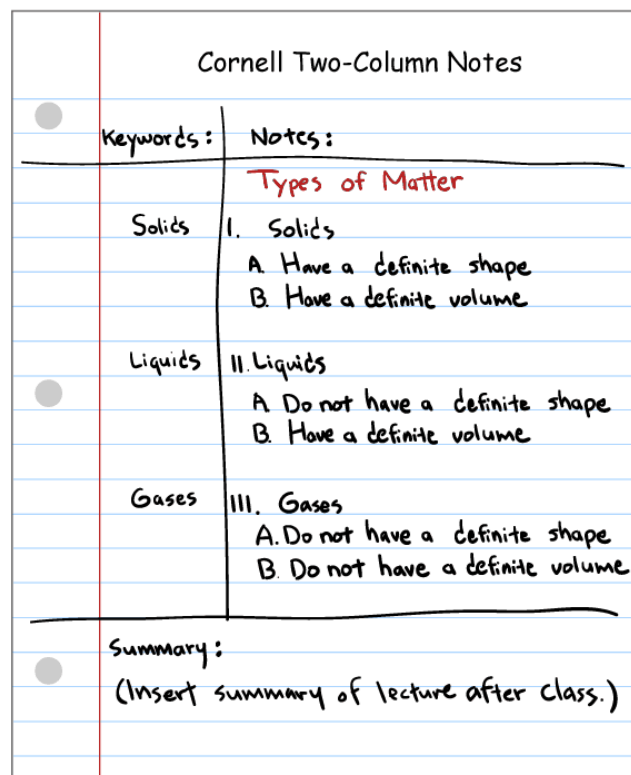 Cornell Two-Column Notes
Keywords: Notes:
Types of Matter
Solids I. Solids
A. Have a definite shape
B. Have a definite volume
Liquids II. Liquids
A. Do not have a definite shape
B. Have a definite volume
Gases III. Gases
A. Do not have a definite shape
B. Do not have a definite volume
Summary:
(Insert summary of lecture after class.)